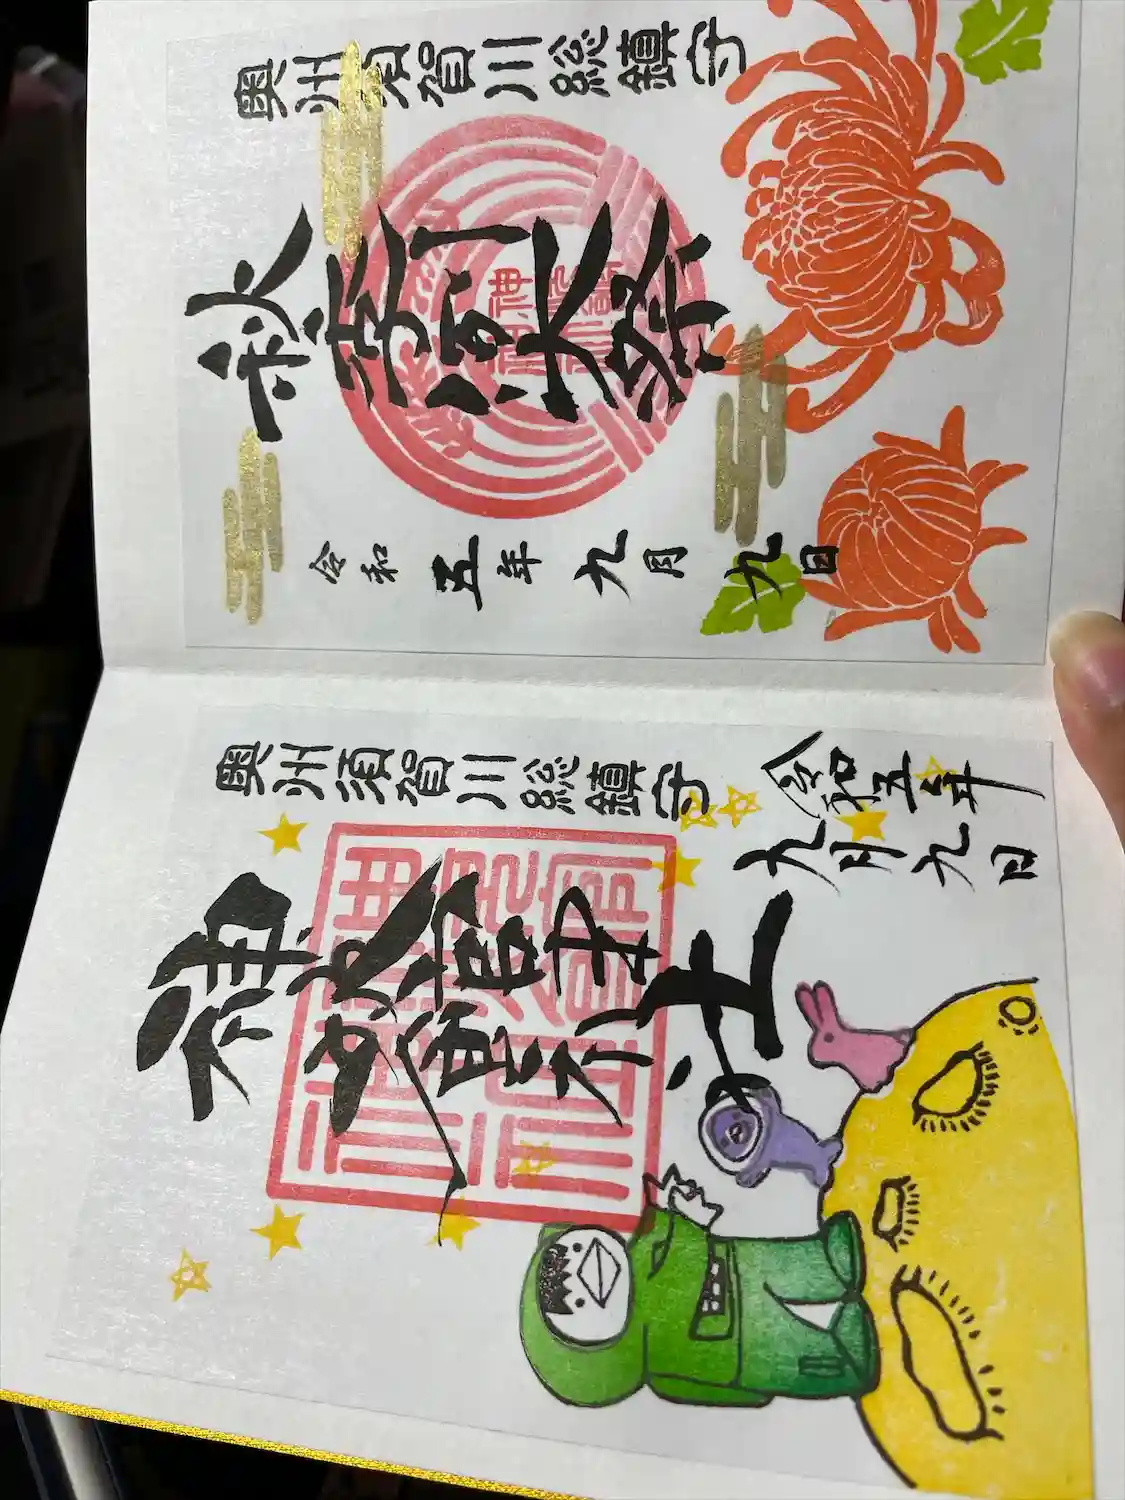 奥州須賀川総鎮守
秋季例大祭
令和五年九月九日
奥州須賀川総鎮守
神炊館神社
令和五年
九月九日